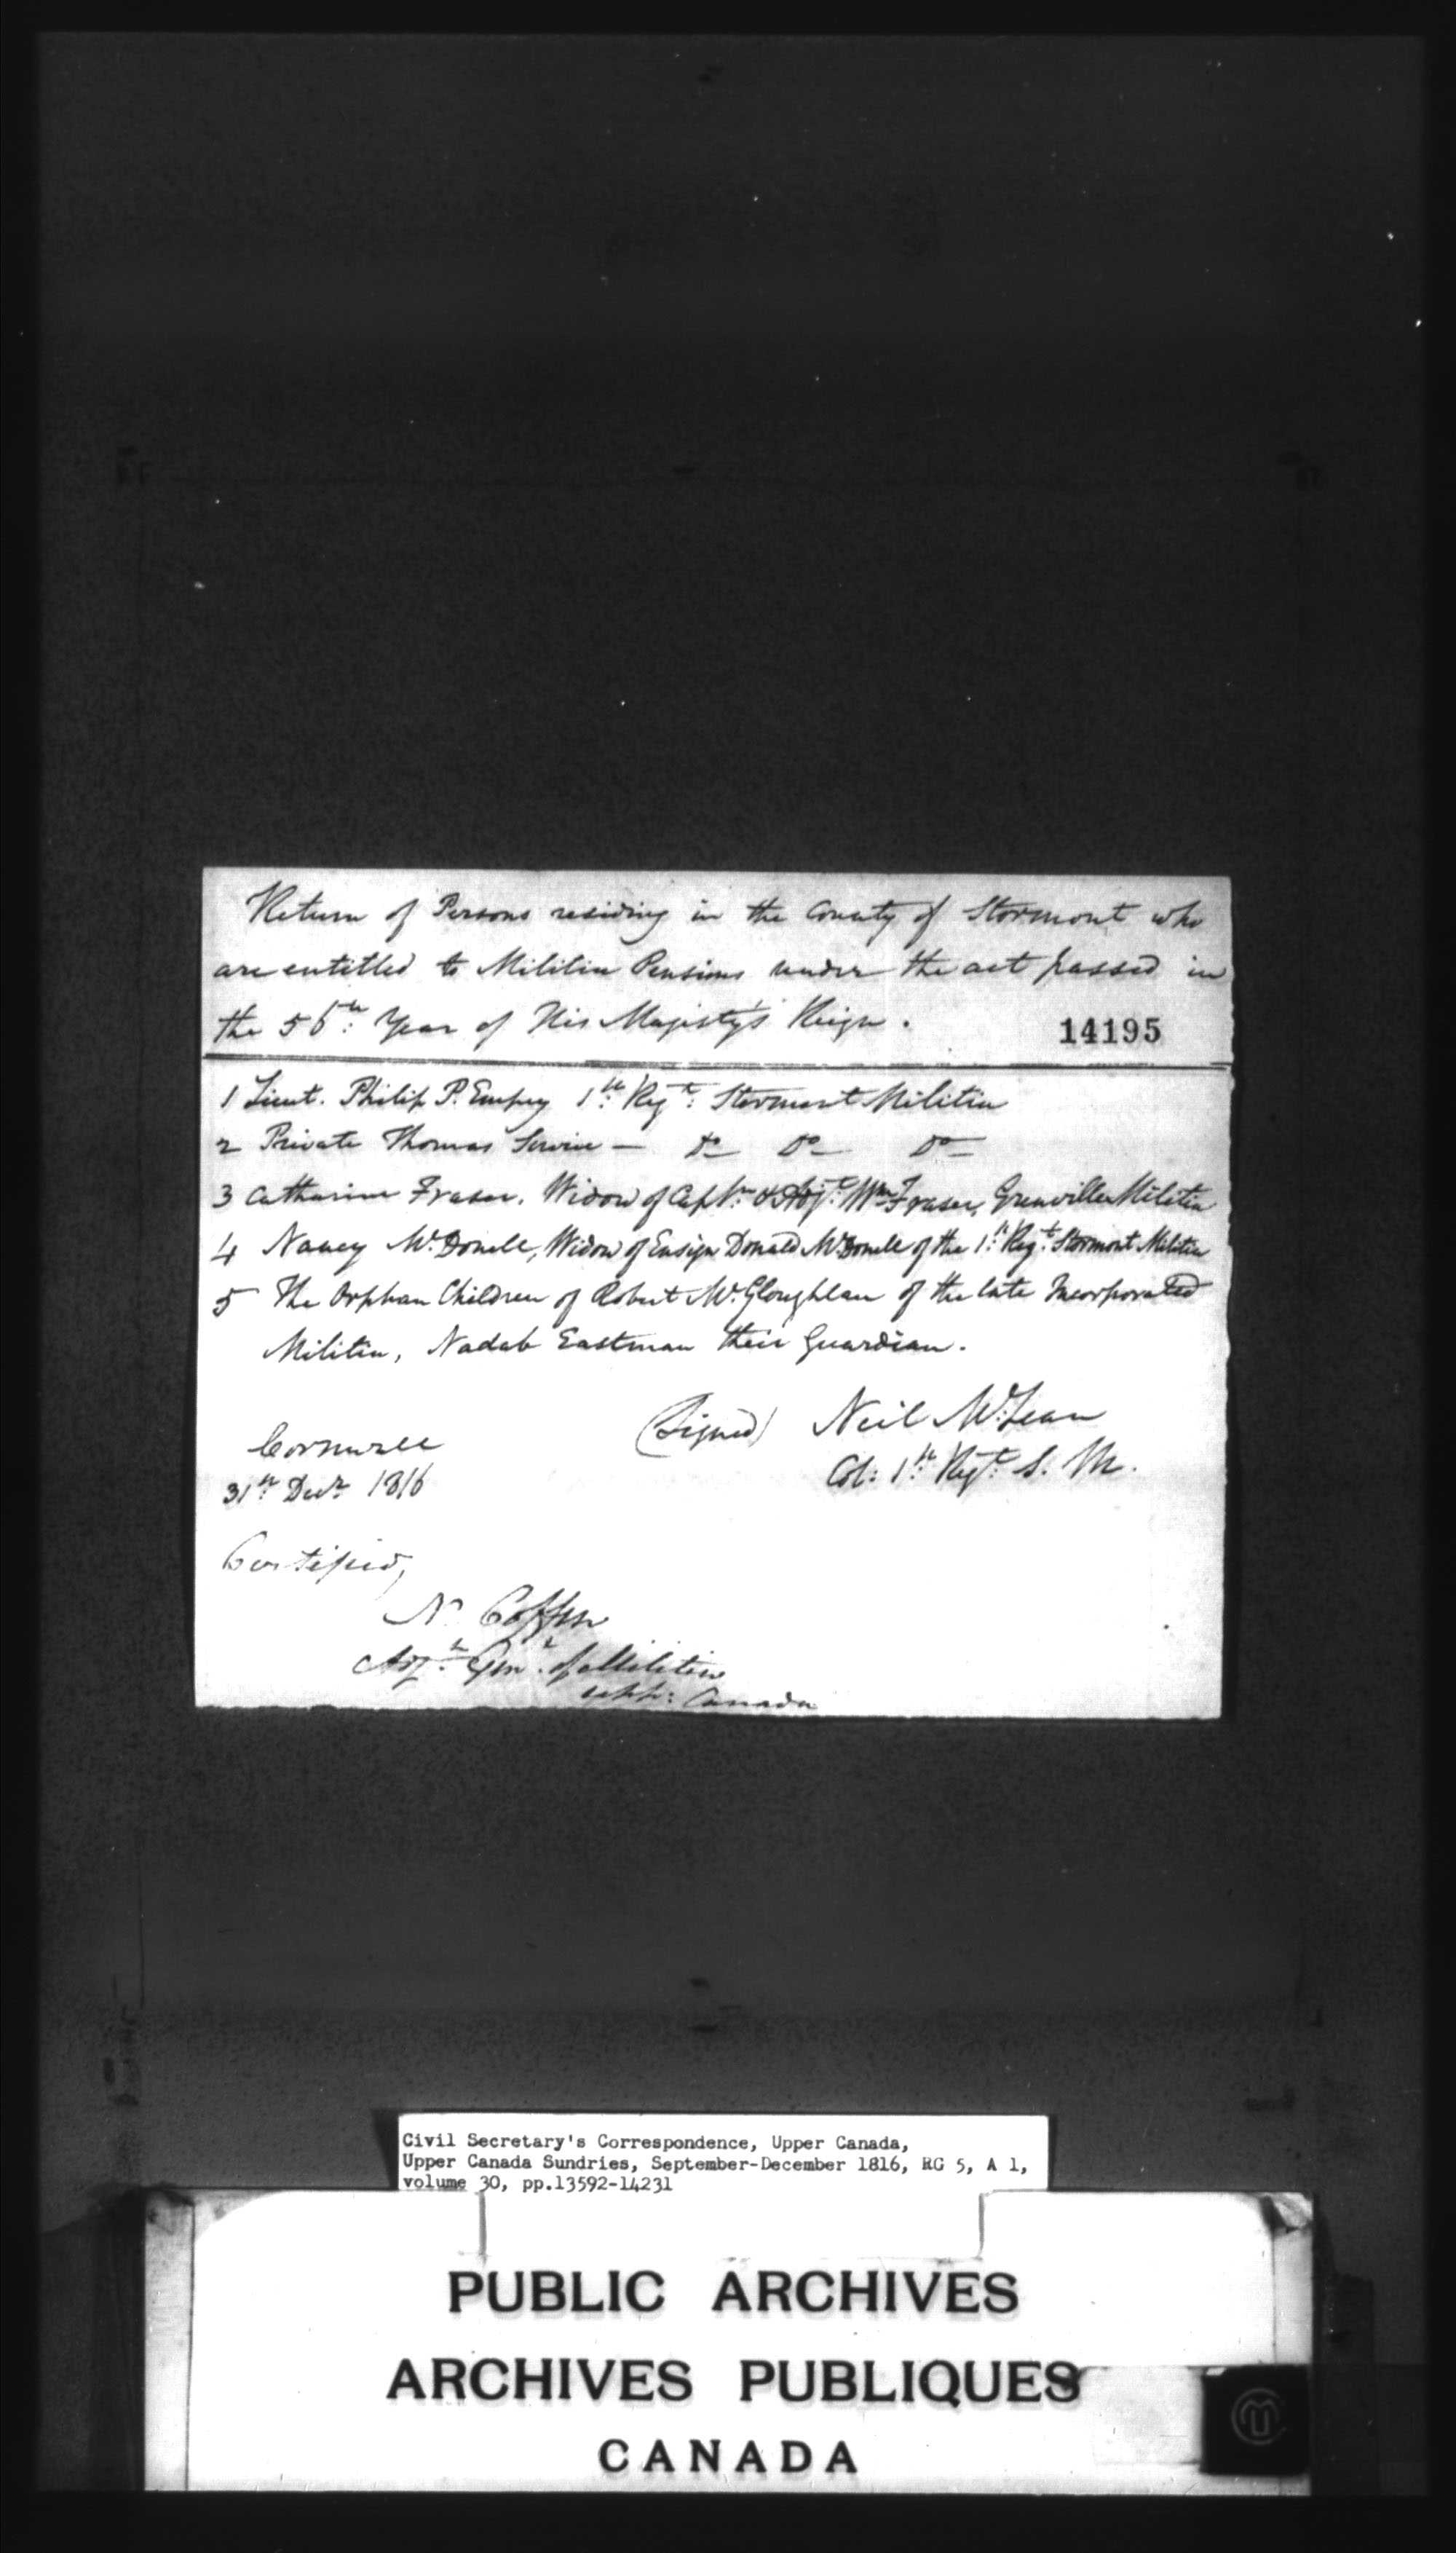 Return of Persons residing in the County of Stormont who
are entitled to Militia Pensions under the act passed in
the 56th: Year of His Majesty's Reign.
14195
1 Lieut. Philip P. Empey 1st: Regt: Stormont Militia
2 Private Thomas Servie — Do Do Do
3 Catharine Fraser, Widow of Captn: & Adjt: Wm Fraser, Grenville Militia
4 Nancy McDonell, Widow of Ensign Donald McDonell of the 1st: Regt: Stormont Militia
5 The Orphan Children of Robert McGloughlan of the late Incorporated
Militia, Nadab Eastman their Guardian.
(Signed) Neil McLean
Col: 1st: Regt: S. M.
Cornwall
31st: Decr 1816
Certified,
N. Coffin
Adjt: Genl. of Militia
Upp: Canada
Civil Secretary's Correspondence, Upper Canada,
Upper Canada Sundries, September-December 1816, RG 5, A 1,
volume 30, pp.13592-14231
PUBLIC ARCHIVES
ARCHIVES PUBLIQUES
CANADA